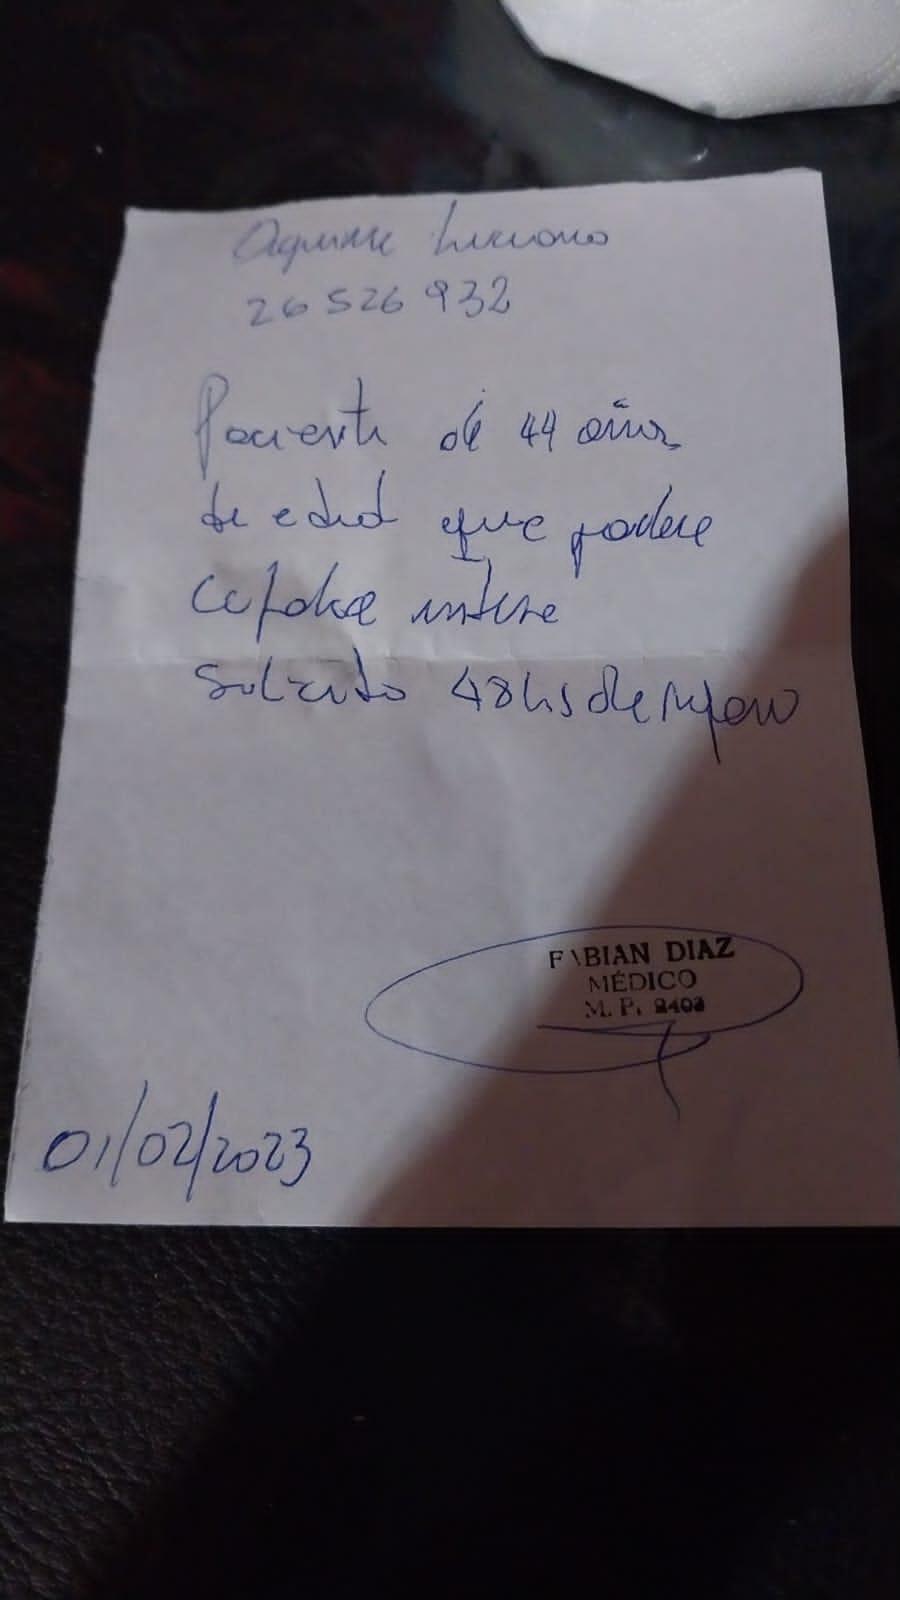 Aguirre Luciano
26 526 932
Paciente de 44 años
de edad que padece
Cefalea intensa
Solicito 48hs de reposo
FABIAN DIAZ
MÉDICO
M. P.
01/02/2023